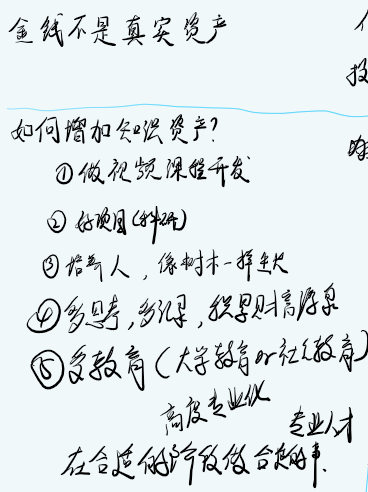 金钱不是真实资产
如何增加知识资产?
①做视频课程开发
②好项目(科研)
③培养人,像树木一样生长
④多思考,多记录,积累财富源泉
⑤受教育(大学教育or社会教育)
高度专业化
专业人才
在合适的阶段做合适的事.